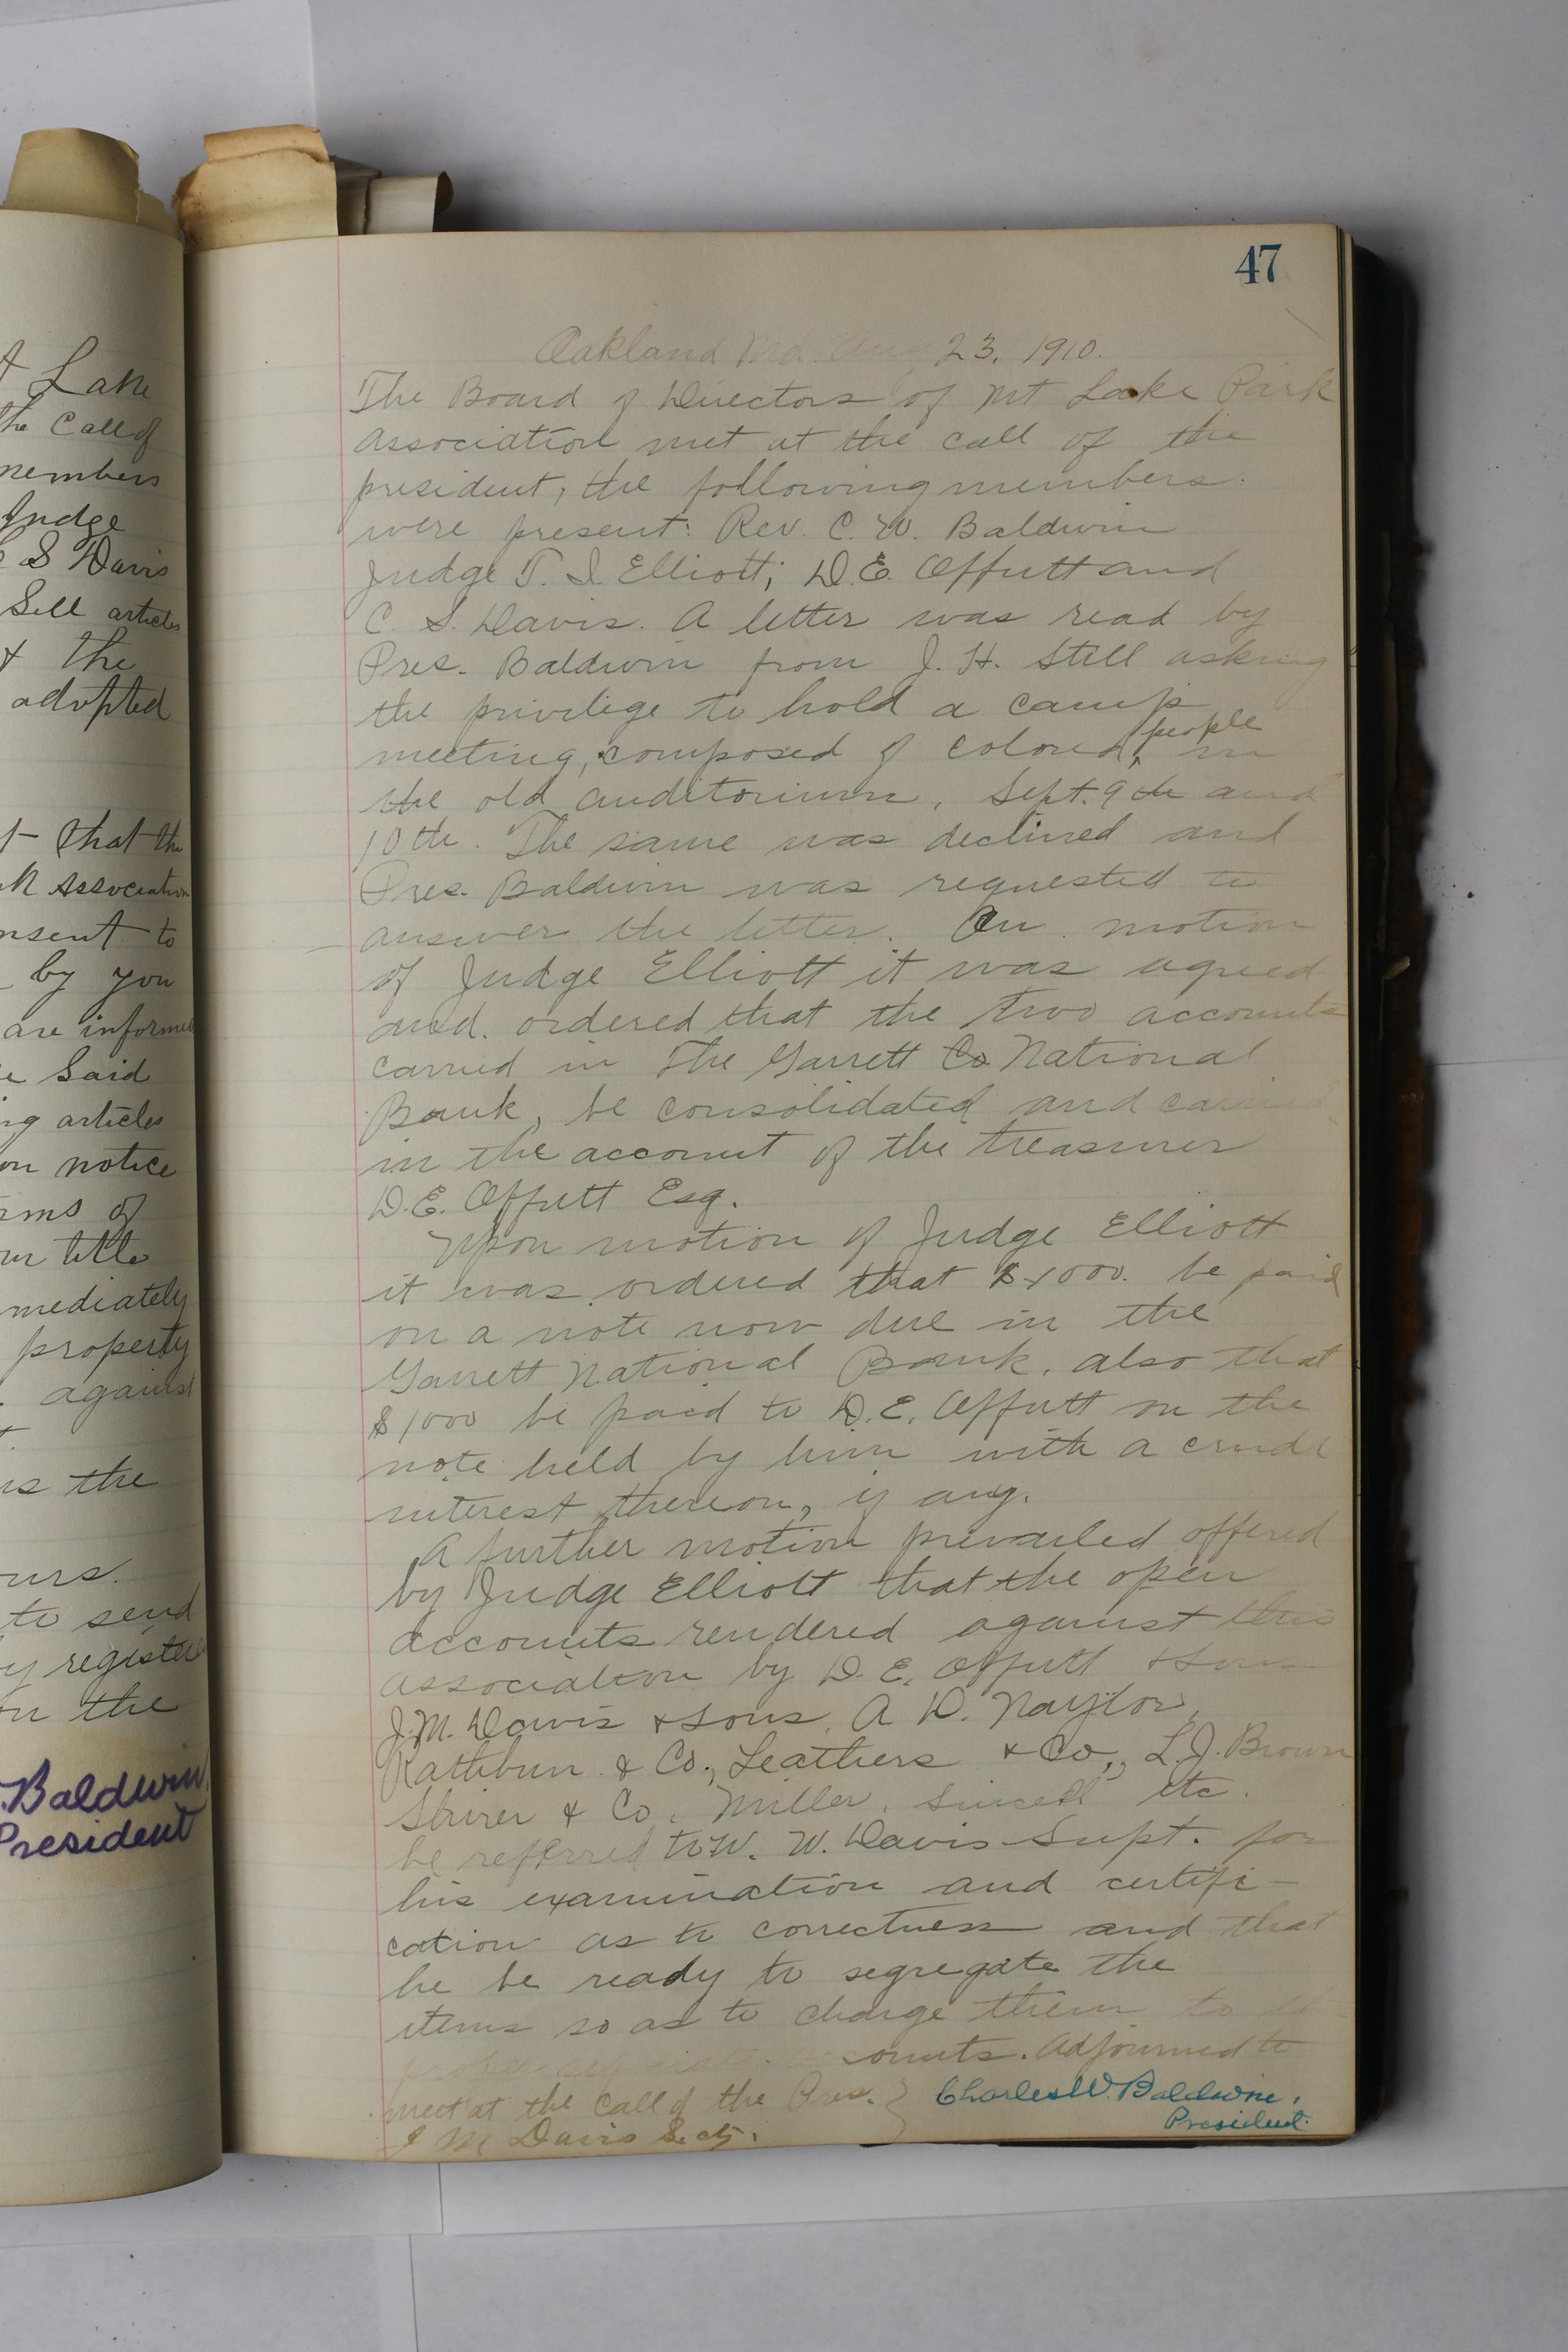 t Lake
the Call of
members
Judge
S Davis
Sell articles
& the
adopted
t that the
k Association
nsent to
by you
are informed
e Said
ng articles
on notice
rms of
ur title
mediately
property
. against
t.
is the
urs.
to send
by register
on the
Baldwin,
President
47
Oakland Md. Aug 23, 1910.
The Board of Directors of Mt Lake Park
Association met at the call of the
president, the following members
were present: Rev. C. W. Baldwin
Judge T. I. Elliott; D. E. Offutt and
C. S. Davis. A letter was read by
Pres. Baldwin from J. H. Still asking
the privilege to hold a camp
meeting, composed of colored people in
the old auditorium, Sept. 9th and
10th. The same was declined and
Pres. Baldwin was requested to
answer the letter. On motion
of Judge Elliott it was agreed
and ordered that the two accounts
carried in The Garrett Co National
Bank, be consolidated and carried
in the account of the treasurer
D. E. Offutt Esq.
Upon motion of Judge Elliott
it was ordered that $1000. be paid
on a note now due in the
Garrett National Bank, also that
$1000 be paid to D. E. Offutt on the
note held by him with a crude
interest thereon, if any.
A further motion prevailed offered
by Judge Elliott that the open
accounts rendered against this
association by D. E. Offutt & Sons
J. M. Davis & Sons, A. D. Naylor,
Rathbun & Co., Leathers & Co., L. J. Brown
Shirer & Co, Miller, Sincell etc.
be referred to W. W. Davis Supt. for
his examination and certifi-
cation as to correctness and that
he be ready to segregate the
items so as to charge them to
ounts. Adjourned to
meet at the call of the Pres. } Charles W. Baldwin,
J M Davis Secty. President.